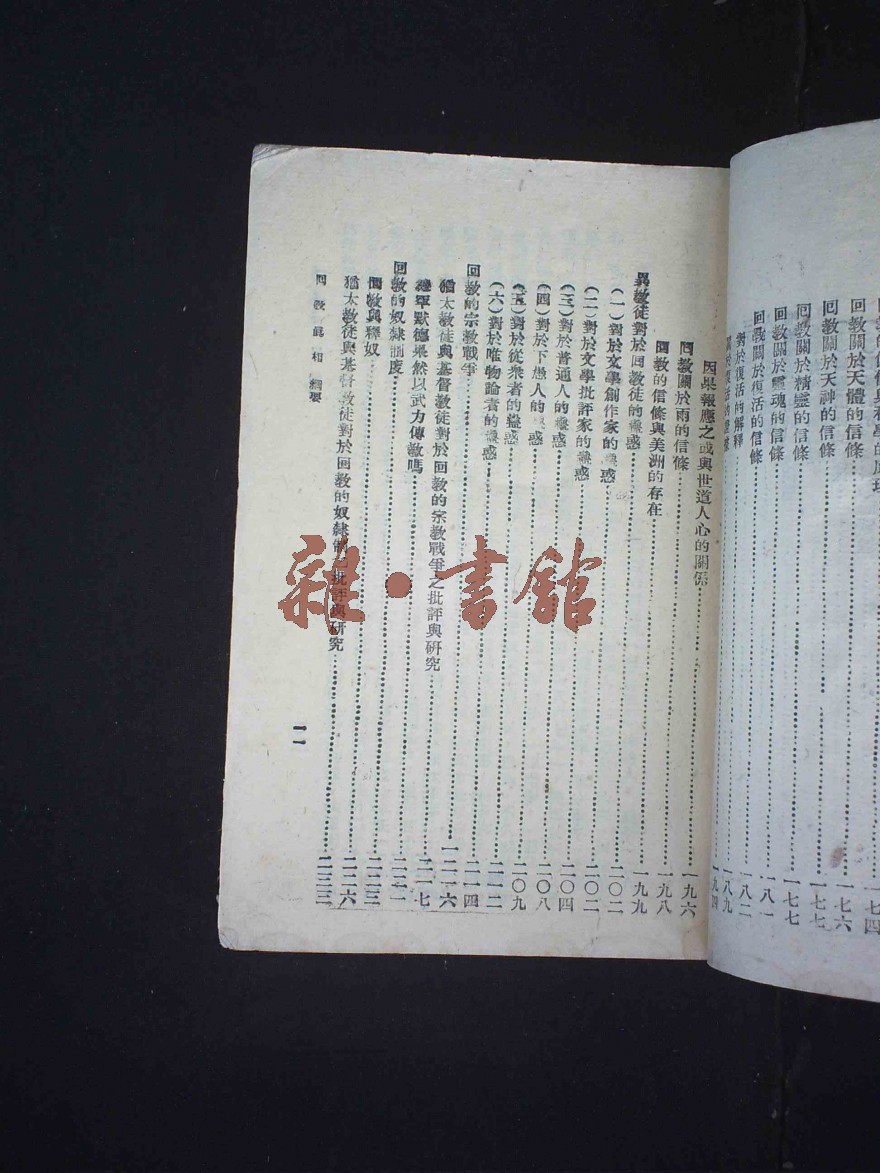 的信條與科學的原理 一七四
回教關於天體的信條 一七六
回教關於天神的信條 一七七
回教關於精靈的信條 一七七
回教關於靈魂的信條 一八一
回教關於復活的信條 一八二
對於復活的解釋 一八九
關於復活的證據 一九四
因果報應之或與世道人心的關係 一九六
回教關於雨的信條 一九八
回教的信條與美洲的存在 一九九
異教徒對於回教徒的蠱惑 二〇二
(一)對於文學創作家的蠱惑 二〇二
(二)對於文學批評家的蠱惑 二〇四
(三)對於普通人的蠱惑 二〇八
(四)對於下愚人的蠱惑 二〇九
(五)對於從衆者的蠱惑 二一二
(六)對於唯物論者的蠱惑 二一四
回教的宗教戰爭 二一六
猶太教徒與基督教徒對於回教的宗教戰爭之批評與研究 二一七
穆罕默德果然以武力傳教嗎 二二一
回教的奴隸制度 二二三
回教與釋奴 二二六
猶太教徒與基督教徒對於回教的奴隸制之批評與研究 二三三
回教眞相 綱要
一一
雜·書館